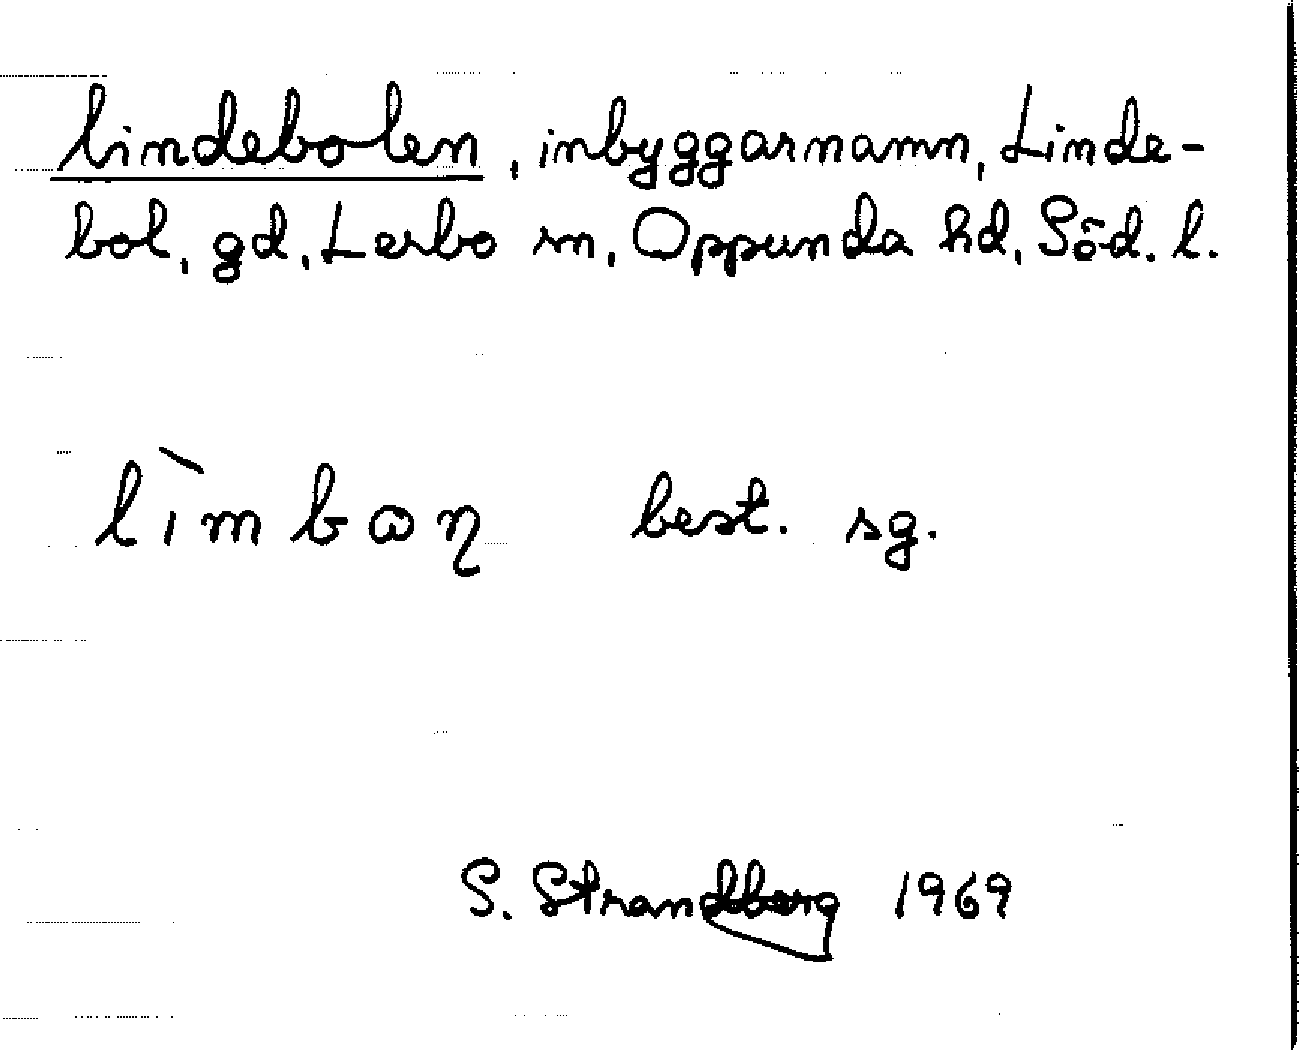 lindebolen, inbyggarnamn, Linde-
bol, gd, Lerbo sn, Oppunda hd, Söd. l.
lìmbɷɳ best. sg.
S. Strandberg 1969